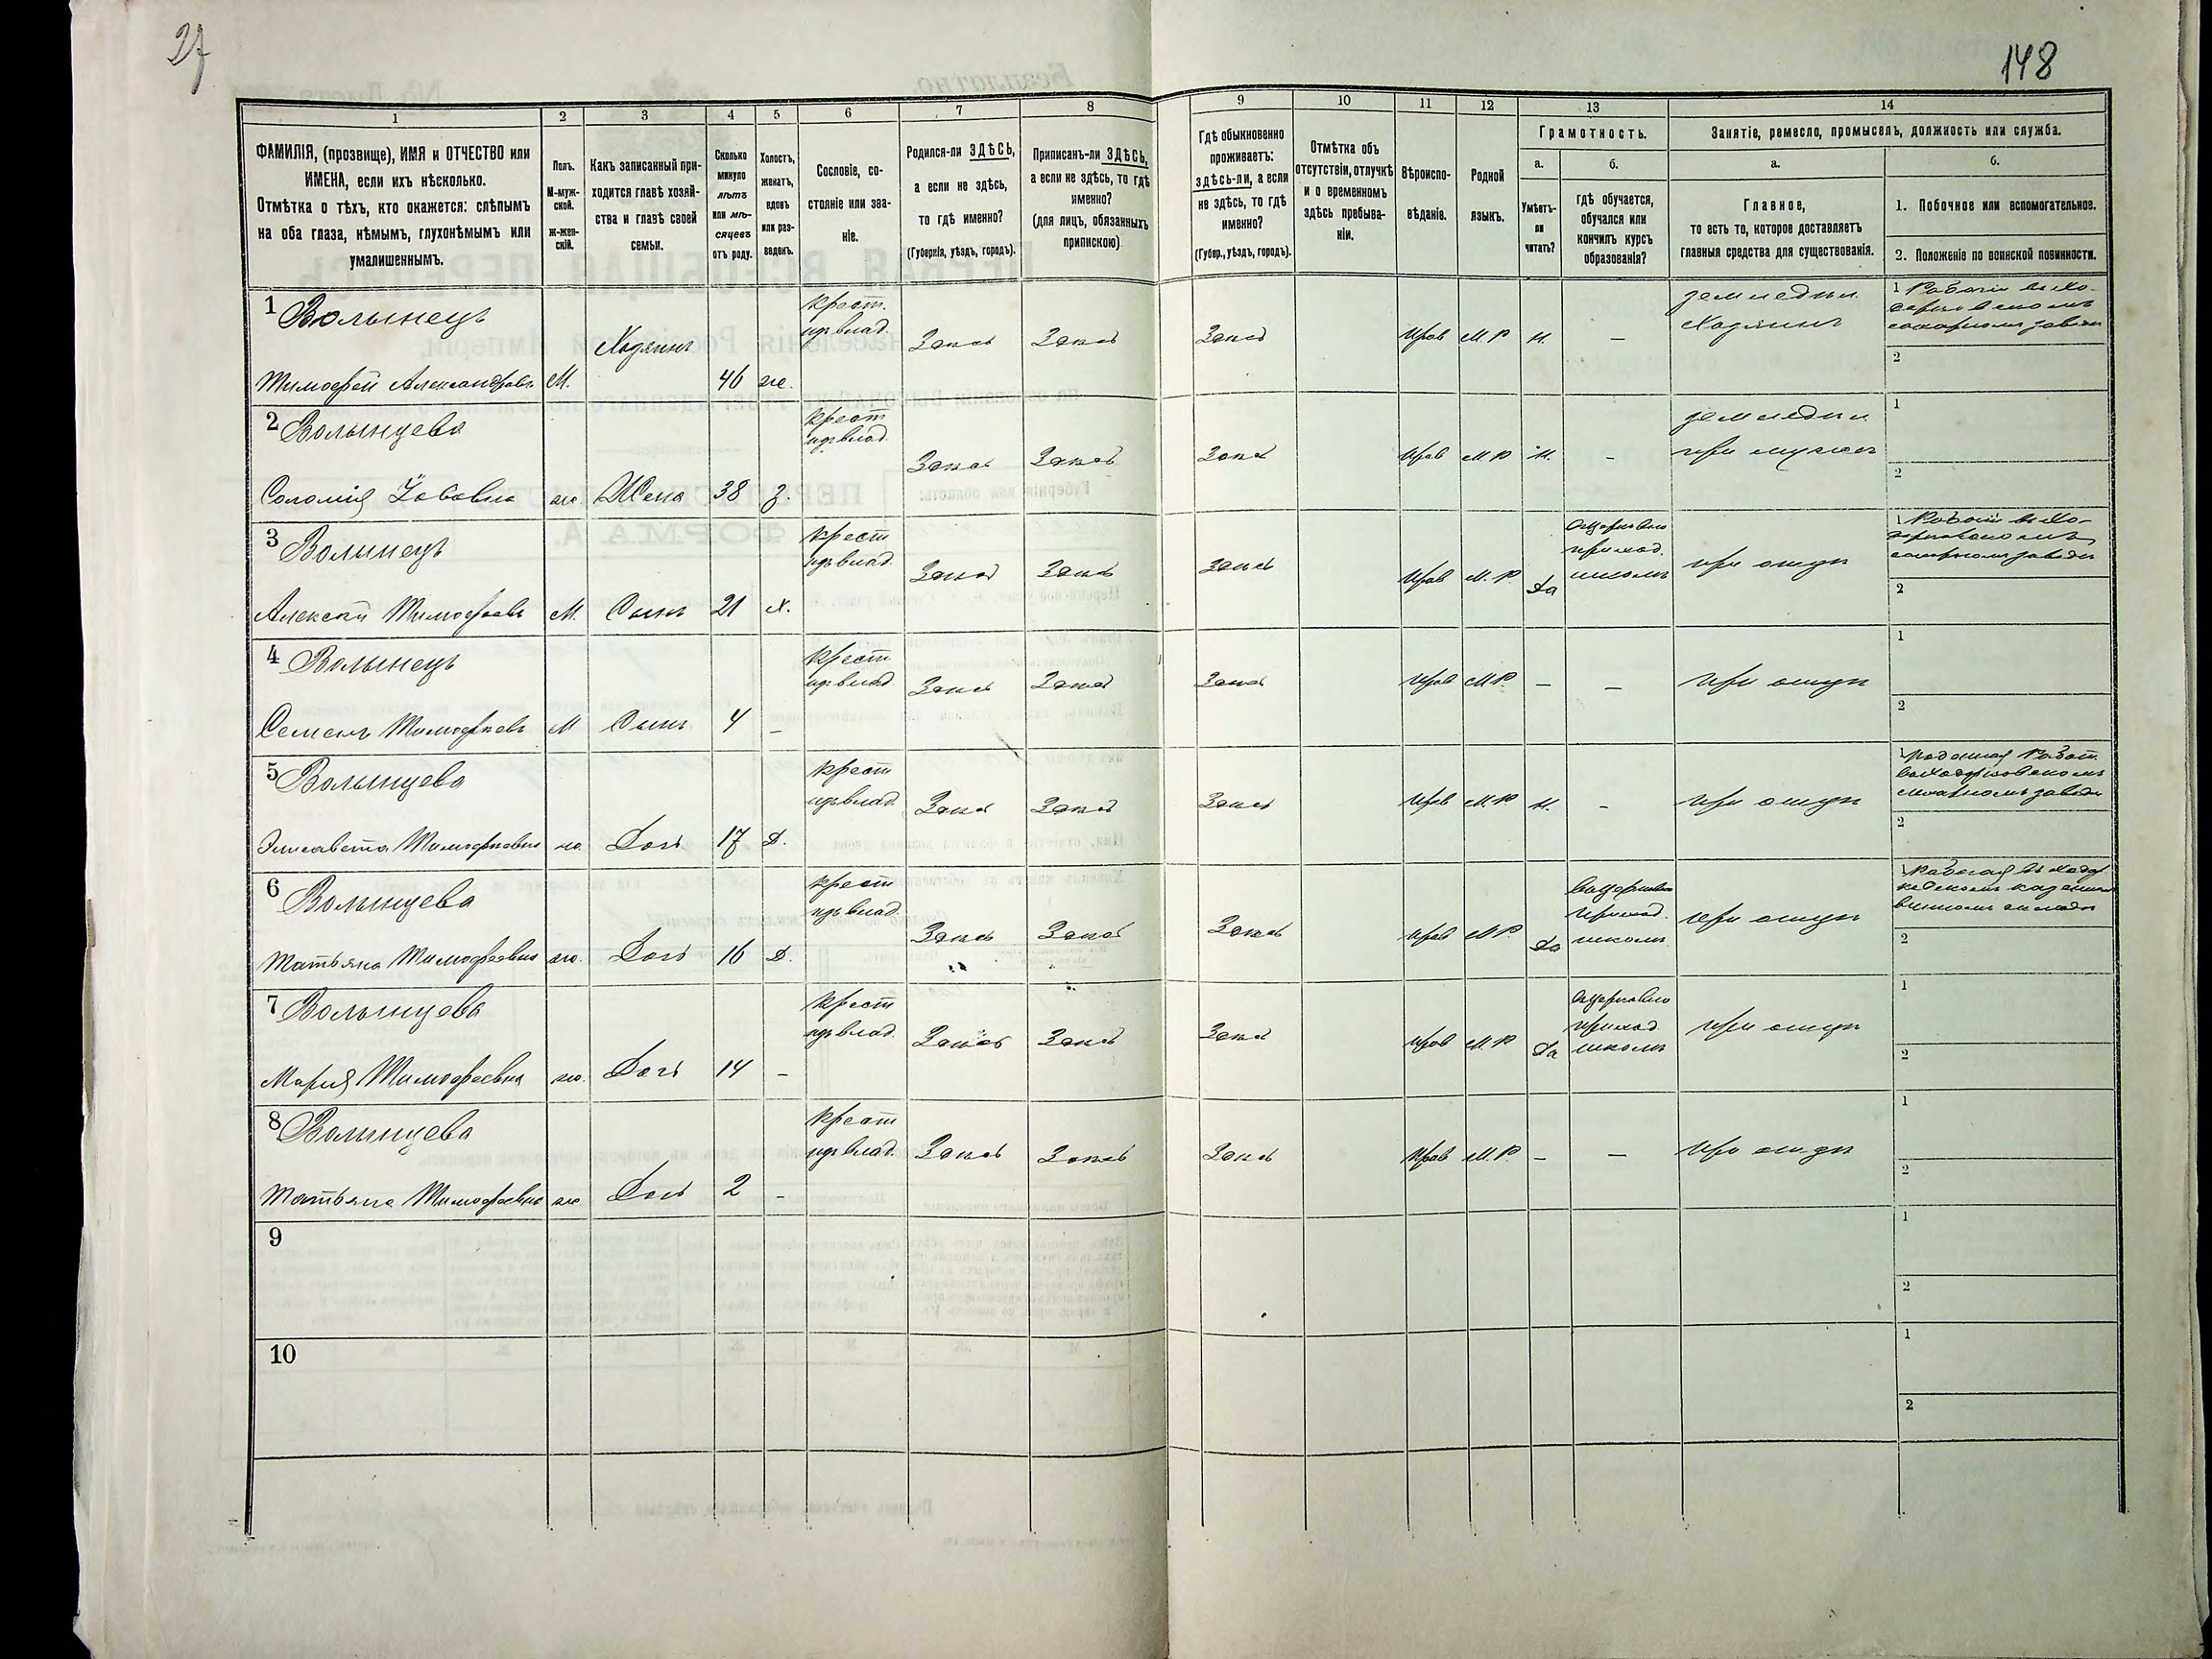 27
148
1
2
3
4
5
6
7
8
9
10
11
12
13
14
ФАМИЛІЯ, (прозвище), ИМЯ и ОТЧЕСТВО или
ИМЕНА, если ихъ нѣсколько.
Отмѣтка о тѣхъ, кто окажется: слѣпымъ
на оба глаза, нѣмымъ, глухонѣмымъ или
умалишеннымъ.
Полъ.
М-муж-
ской.
ж-жен-
скій.
Какъ записанный при-
ходится главѣ хозяй-
ства и главѣ своей
семьи.
Сколько
минуло
лѣтъ
или мѣ-
сяцевъ
отъ роду.
Холостъ,
женатъ,
вдовъ
или раз-
веденъ.
Сословіе, со-
стояніе или зва-
ніе.
Родился-ли ЗДѢСЬ,
а если не здѣсь,
то гдѣ именно?
(Губернія, уѣздъ, городъ).
Приписанъ-ли ЗДѢСЬ,
а если не здѣсь, то гдѣ
именно?
(для лицъ, обязанныхъ
припискою)
Гдѣ обыкновенно
проживаетъ:
здѣсь-ли, а если
не здѣсь, то гдѣ
именно?
(Губер., уѣздъ, городъ).
Отмѣтка объ
отсутствіи, отлучкѣ
и о временномъ
здѣсь пребыва-
ніи.
Вѣроиспо-
вѣданіе.
Родной
языкъ.
Грамотность.
а.
б.
Умѣетъ-
ли
читать?
гдѣ обучается,
обучался или
кончилъ курсъ
образованія?
Занятіе, ремесло, промыселъ, должность или служба.
а.
б.
Главное,
то есть то, которое доставляетъ
главныя средства для существованія.
1. Побочное или вспомогательное.
2. Положеніе по воинской повинности.
1 Волынецъ
Тимофей Александровъ М. Хозяинъ 46 ж.
крест.
изъ влад.
Здѣсь Здѣсь Здѣсь Прав М.Р Н. —
земледѣл.
Хозяинъ
1
2
2 Волынцева
Соломія ж Жена 38 З.
крест
изъ влад.
Здѣсь Здѣсь Здѣсь Прав М.Р Н. —
земледѣл.
при мужѣ
1
2
3 Волынецъ
Алексѣй Тимофеевъ М. Сынъ 21 Х.
крест
изъ влад.
Здѣсь Здѣсь Здѣсь Прав М.Р Да
приход.
школѣ
при отцѣ
1
2
4 Волынецъ
Семенъ Тимофеевъ М Сынъ 4 —
крест
изъ влад.
Здѣсь Здѣсь Здѣсь Прав М.Р — — при отцѣ
1
2
5 Волынцева
Елисавета Тимофеевна ж. Дочь 17 Д.
крест
изъ влад.
Здѣсь Здѣсь Здѣсь Прав М.Р Н. — при отцѣ
1
2
6 Волынцева
Татьяна Тимофеевна ж. Дочь 16 Д.
крест
изъ влад.
Здѣсь Здѣсь Здѣсь Прав М.Р. Да
приход.
школѣ
при отцѣ
1
2
7 Волынцева
Марія Тимофеевна ж. Дочь 14 —
крест
изъ влад.
Здѣсь Здѣсь Здѣсь Прав М.Р Да
приход.
школѣ
при отцѣ
1
2
8 Волынцева
Татьяна Тимофеевна ж Дочь 2 —
крест
изъ влад.
Здѣсь Здѣсь Здѣсь Прав М.Р. — — при отцѣ
1
2
9
1
2
10
1
2